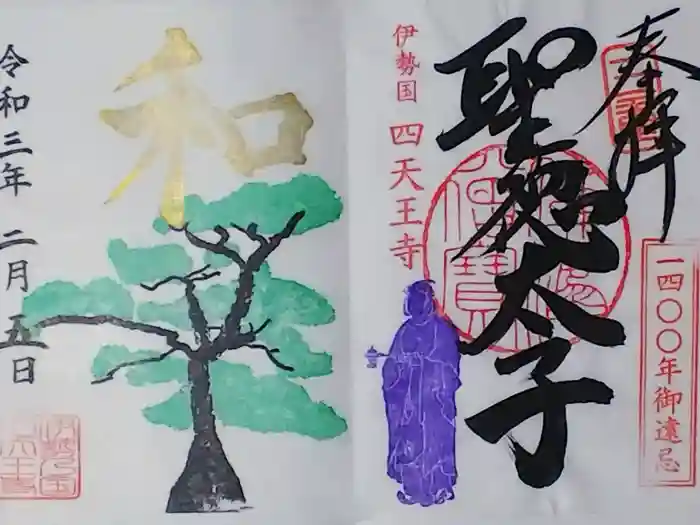 奉拝
聖徳太子
一四〇〇年御遠忌
伊勢国 四天王寺
和
令和三年 二月 五日